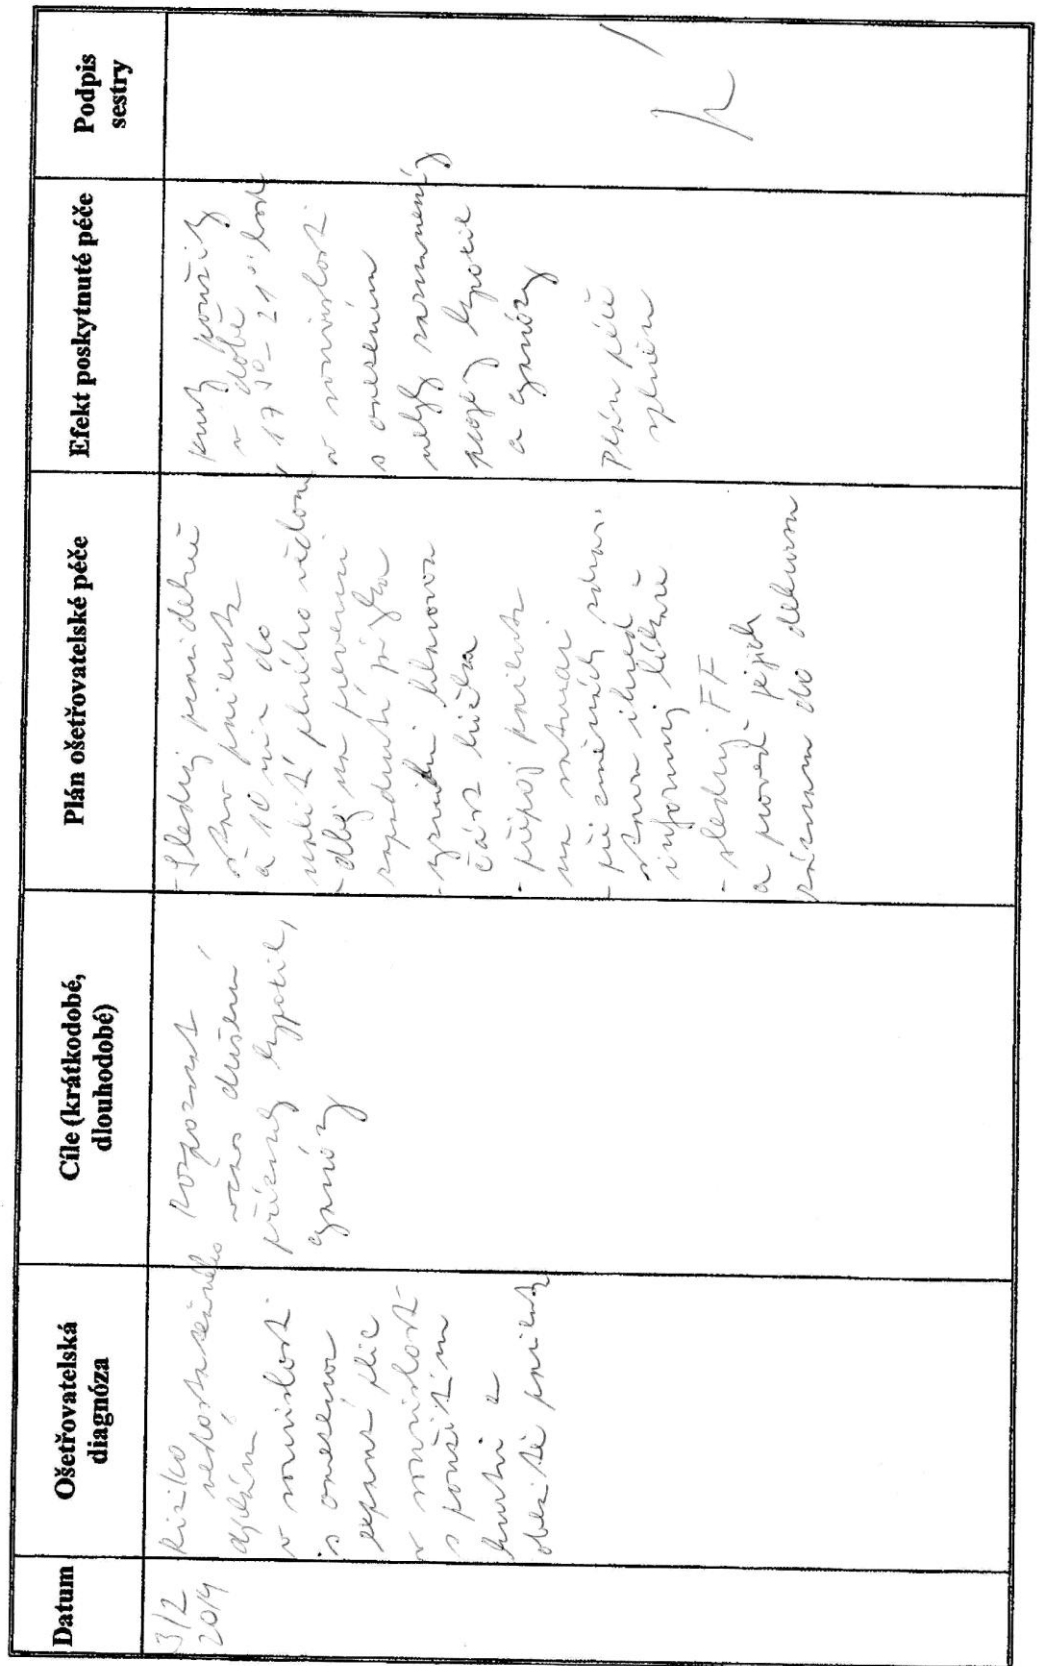 Datum
Ošetřovatelská
diagnóza
Cíle (krátkodobé,
dlouhodobé)
Plán ošetřovatelské péče
Efekt poskytnuté péče
Podpis
sestry
3/2
2014
Riziko
nedostatečného
dýchání
v souvislosti
s omezenou
expanzí plic
v souvislosti
s použitím
kurtů a
obezitě pacienta
Rozpoznat
včas dušení,
příznaky hypoxie,
cyanózy
- Sleduj pravidelně
stav pacienta
à 10 min do
plného vědomí
- dbej na prevenci
zapadnutí jazyka
část lůžka
- připoj pacienta
na
- při změnách zdrav.
stavu ihned
informuj lékaře
- sleduj FF
a proveď jejich
záznam do dekursu
Kurty použity
v době
17 30 - 21 00 hod
v souvislosti
s omezením
nebyly zaznamenány
projevy hypoxie
a cyanózy
Plán péče
splněn